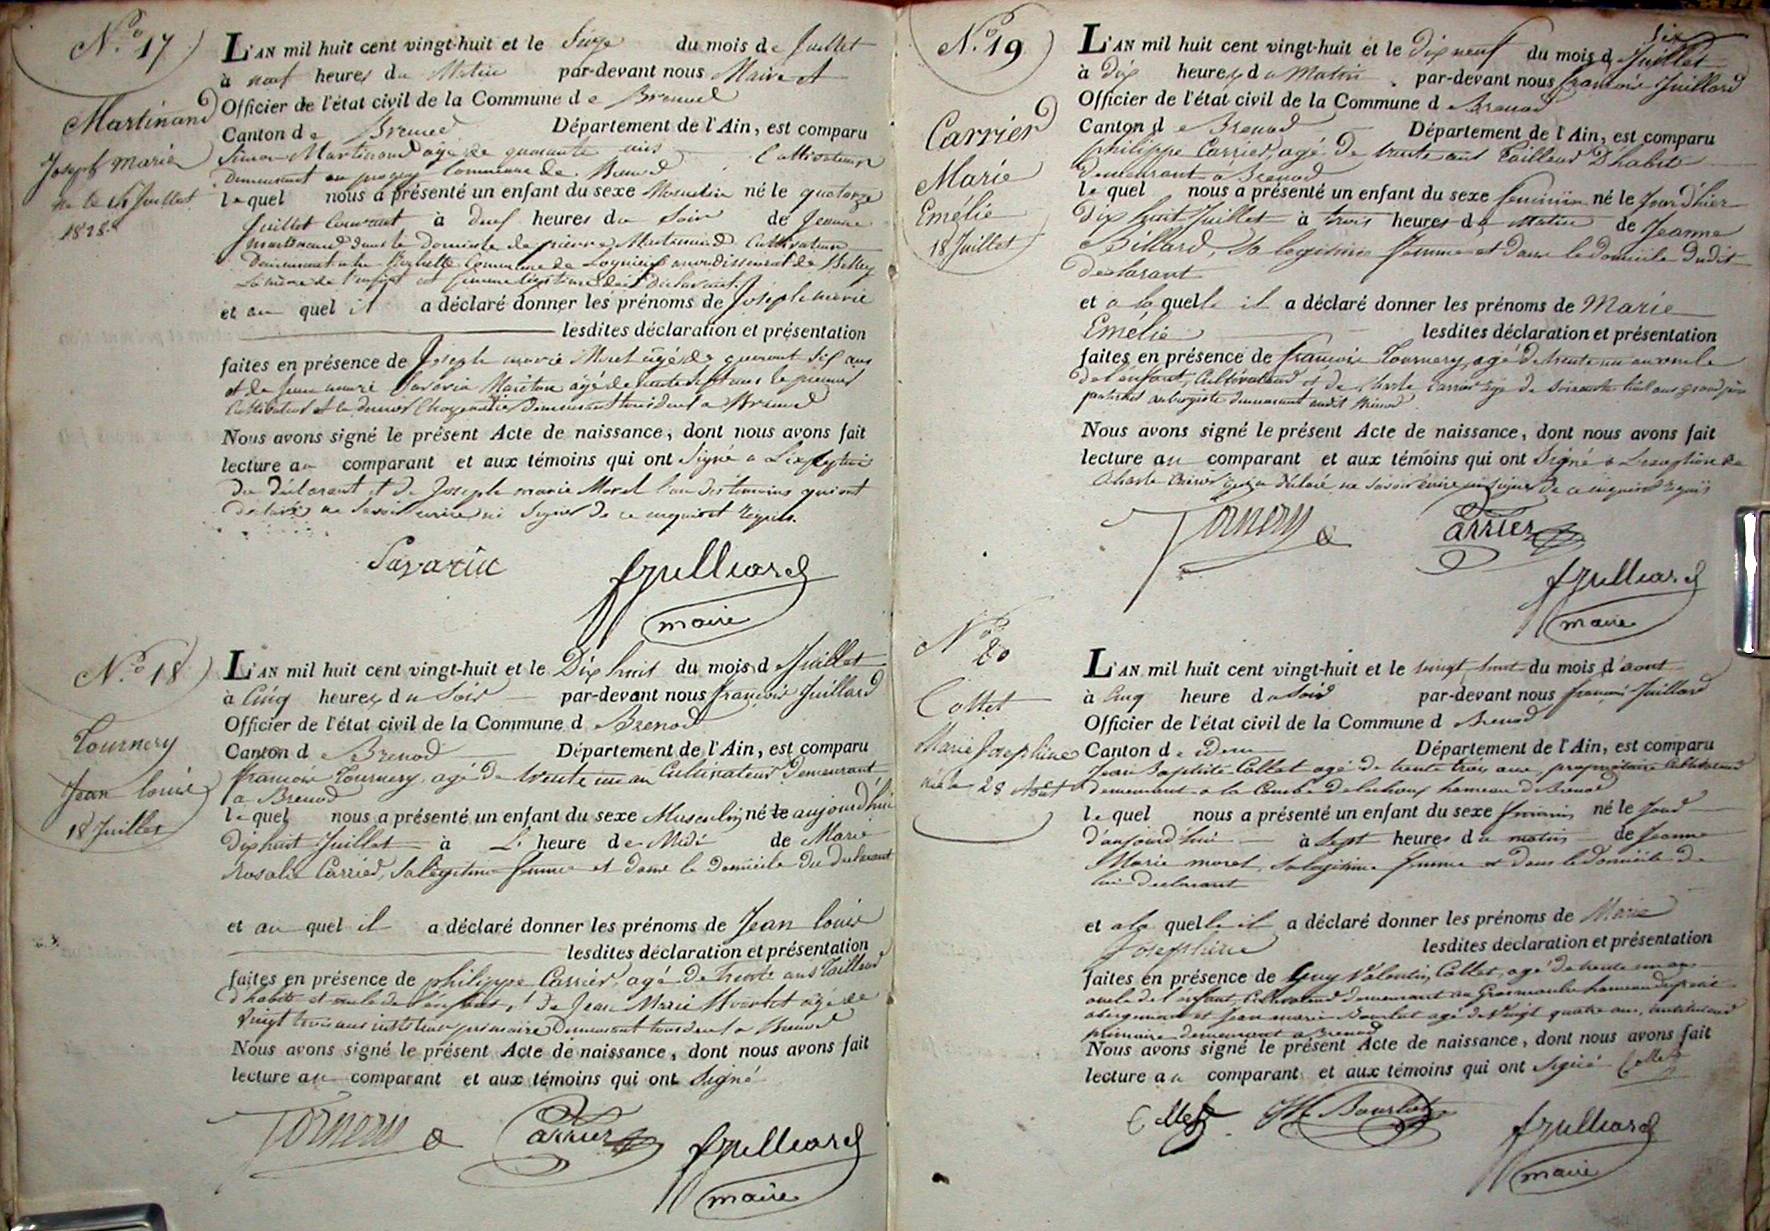 N.o 17
Martinand
Joseph marie
né le 14 Juillet
1828
L'AN mil huit cent vingt-huit et le Seize du mois de Juillet
à neuf heures du Matin par-devant nous Maire et
Officier de l'état civil de la Commune de Brenod
Canton de Brenod Département de l'Ain, est comparu
Simon Martinand âgé de quarante ans Cultivateur
demeurant au Commune de Brenod
lequel nous a présenté un enfant du sexe Masculin né le quatorze
Juillet Courant à heures du Soir de Jeanne
Martinand dans le domicile de pierre Martinand Cultivateur
demeurant Commune de arrondissement de Belley
La mère de l'enfant est femme légitime du déclarant
et au quel il a déclaré donner les prénoms de Joseph marie
lesdites déclaration et présentation
faites en présence de Joseph marie Morel âgé de quarante six ans
et de Savarin âgé de trente sept ans le premier
Cultivateur et le dernier Charpentier Demeurant tous deux à Brenod
Nous avons signé le présent Acte de naissance, dont nous avons fait
lecture au comparant et aux témoins qui ont Signé a L'exception
du déclarant et de Joseph marie Morel l'un des temoins qui ont
déclaré ne Savoir écrire ni Signer de ce enquis et requis.
Savarin
fJuilliard
maire
N.o 18
Tournery
Jean louis
18 Juillet
L'AN mil huit cent vingt-huit et le Dix huit du mois d Juillet
à Cinq heures du Soir par-devant nous françois Juillard
Officier de l'état civil de la Commune d Brenod
Canton d Brenod Département de l'Ain, est comparu
françois Tournery, agé de trente un an Cultivateur Demeurant
a Brenod
lequel nous a présenté un enfant du sexe Masculin né le aujourd'hui
Dix huit Juillet à L' heure de Midi de Marie
Rosalie Carrier, Sa légitime femme et dans le Domicile du declarant
et au quel il a déclaré donner les prénoms de Jean louis
lesdites déclaration et présentation
faites en présence de philippe Carrier, agé de trente ans Tailleur
d'habits et oncle de l'enfant, et De Jean Marie Bourlet âgé de
Vingt trois ans instituteur primaire Demeurant tous deux a Brenod
Nous avons signé le présent Acte de naissance, dont nous avons fait
lecture au comparant et aux témoins qui ont Signé
Tornery
Carrier
fJuilliard
maire
N.o 19
Carrier
Marie
Emélie
18 Juillet
L'AN mil huit cent vingt-huit et le Dix neuf du mois d Juillet
à Dix heures du Matin par-devant nous françois Juillard
Officier de l'état civil de la Commune de Brenod
Canton de Brenod Département de l'Ain, est comparu
philippe Carrier, agé De trente ans Tailleur D'habits
demeurant a Brenod
lequel nous a présenté un enfant du sexe feminin né le Jour d'hier
Dix huit Juillet à trois heures du Matin de Jeanne
Billard, Sa legitime femme et Dans le domicile dudit
declarant
et a la quelle il a déclaré donner les prénoms de Marie
Emélie lesdites déclaration et présentation
faites en présence de françois Tournery, agé de trente un an oncle
de l'enfant, Cultivateur et de Charle Carrier agé de Soixante huit ans grand père
paternel aubergiste demeurant audit Brenod
Nous avons signé le présent Acte de naissance, dont nous avons fait
lecture au comparant et aux témoins qui ont Signé a L'exception de
Charle Carrier qui a Déclaré ne Savoir écrire ni signer De ce enquis et Requis
Tornery
Carrier
fJuilliard
maire
N.o 20
Collet
Marie Josephine
née le 28 Août
L'AN mil huit cent vingt-huit et le vingt huit du mois d'aout
à Cinq heure du Soir par-devant nous françois Juillard
Officier de l'état civil de la Commune d Brenod
Canton de idem Département de l'Ain, est comparu
Jean Baptiste Collet agé de trente trois ans, propriétaire Cultivateur
demeurant a la Combe hameau de Brenod
lequel nous a présenté un enfant du sexe feminin né le Jour
d'aujourd'hui à Sept heures du matin de Jeanne
Marie morel, Sa legitime femme et dans le Domicile de
lui declarant
et a la quelle il a déclaré donner les prénoms de Marie
Josephine lesdites déclaration et présentation
faites en présence de Guy Valentin Collet, agé de trente un ans
oncle de l'enfant, Cultivateur demeurant au hameau
et Jean marie Bourlet agé de Vingt quatre ans, instituteur
primaire demeurant a Brenod
Nous avons signé le présent Acte de naissance, dont nous avons fait
lecture au comparant et aux témoins qui ont signé Collet
Collet
JM Bourlet
fJuilliard
maire